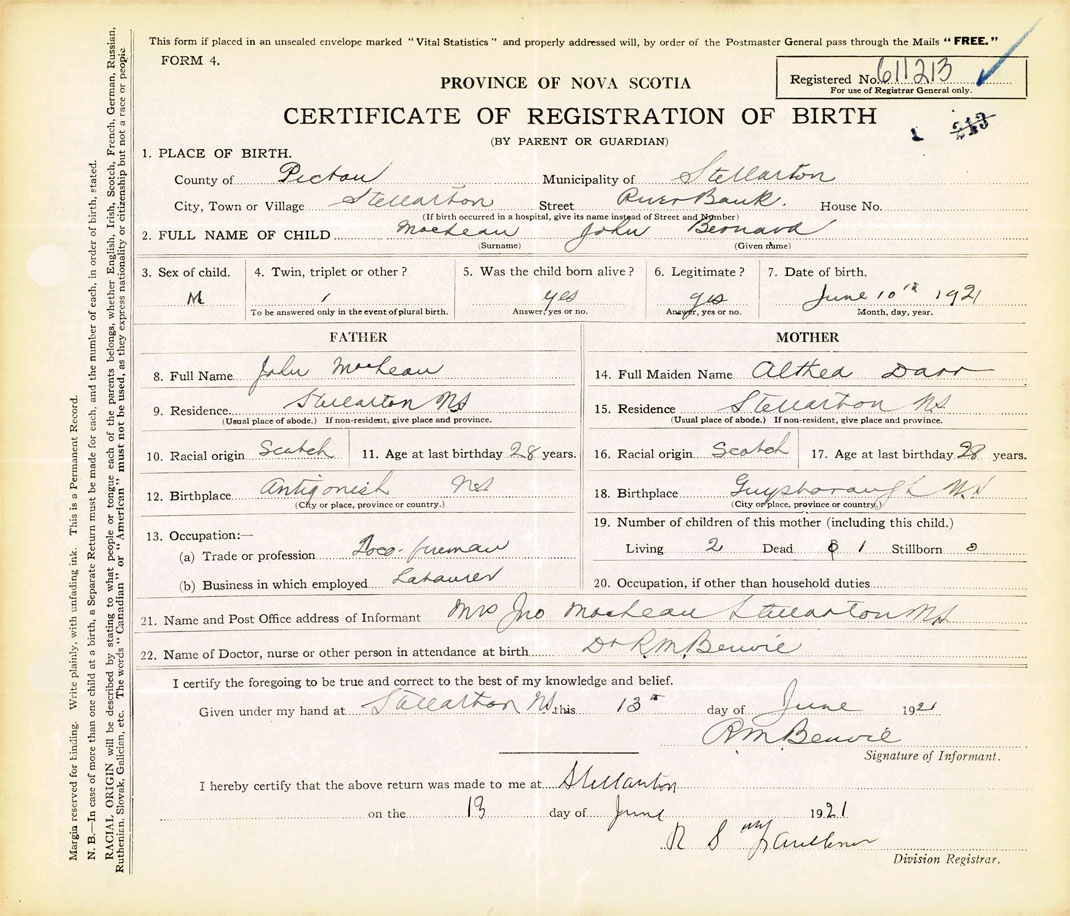 This form if placed in an unsealed envelope marked "Vital Statistics" and properly addressed will, by order of the Postmaster General pass through the Mails "FREE."
FORM 4.
Registered No. 611213
For use of Registrar General only.
PROVINCE OF NOVA SCOTIA
CERTIFICATE OF REGISTRATION OF BIRTH
(BY PARENT OR GUARDIAN)
1 213
1. PLACE OF BIRTH.
County of Pictou Municipality of Stellarton
City, Town or Village Stellarton Street River Bank. House No.
(If birth occurred in a hospital, give its name instead of Street and Number)
2. FULL NAME OF CHILD MacLean John Bernard
(Surname) (Given name)
3. Sex of child. 4. Twin, triplet or other? 5. Was the child born alive? 6. Legitimate? 7. Date of birth.
M yes yes June 10th 1921
To be answered only in the event of plural birth. Answer, yes or no. Answer, yes or no. Month, day, year.
FATHER MOTHER
8. Full Name John MacLean 14. Full Maiden Name Althea Darr
9. Residence Stellarton NS 15. Residence Stellarton NS
(Usual place of abode.) If non-resident, give place and province. (Usual place of abode.) If non-resident, give place and province.
10. Racial origin Scotch 11. Age at last birthday 28 years. 16. Racial origin Scotch 17. Age at last birthday 28 years.
12. Birthplace Antigonish NS 18. Birthplace Guysborough NS
(City or place, province or country.) (City or place, province or country.)
13. Occupation:— 19. Number of children of this mother (including this child.)
(a) Trade or profession Loco-fireman Living 2 Dead 1 Stillborn 0
(b) Business in which employed Labourer 20. Occupation, if other than household duties
21. Name and Post Office address of Informant Mrs Jno MacLean Stellarton NS
22. Name of Doctor, nurse or other person in attendance at birth Dr R.M. Benvie
I certify the foregoing to be true and correct to the best of my knowledge and belief.
Given under my hand at Stellarton NS this 13th day of June 1921
RM Benvie
Signature of Informant.
I hereby certify that the above return was made to me at Stellarton
on the 13 day of June 1921
R S
Division Registrar.
Margin reserved for binding. Write plainly, with unfading ink. This is a Permanent Record.
N. B.—In case of more than one child at a birth, a Separate Return must be made for each, and the number of each, in order of birth, stated.
RACIAL ORIGIN will be described by stating to what people or tongue each of the parents belongs, whether English, Irish, Scotch, French, German, Russian,
Ruthenian, Slovak, Galician, etc. The words "Canadian" or "American" must not be used, as they express nationality or citizenship but not a race or people